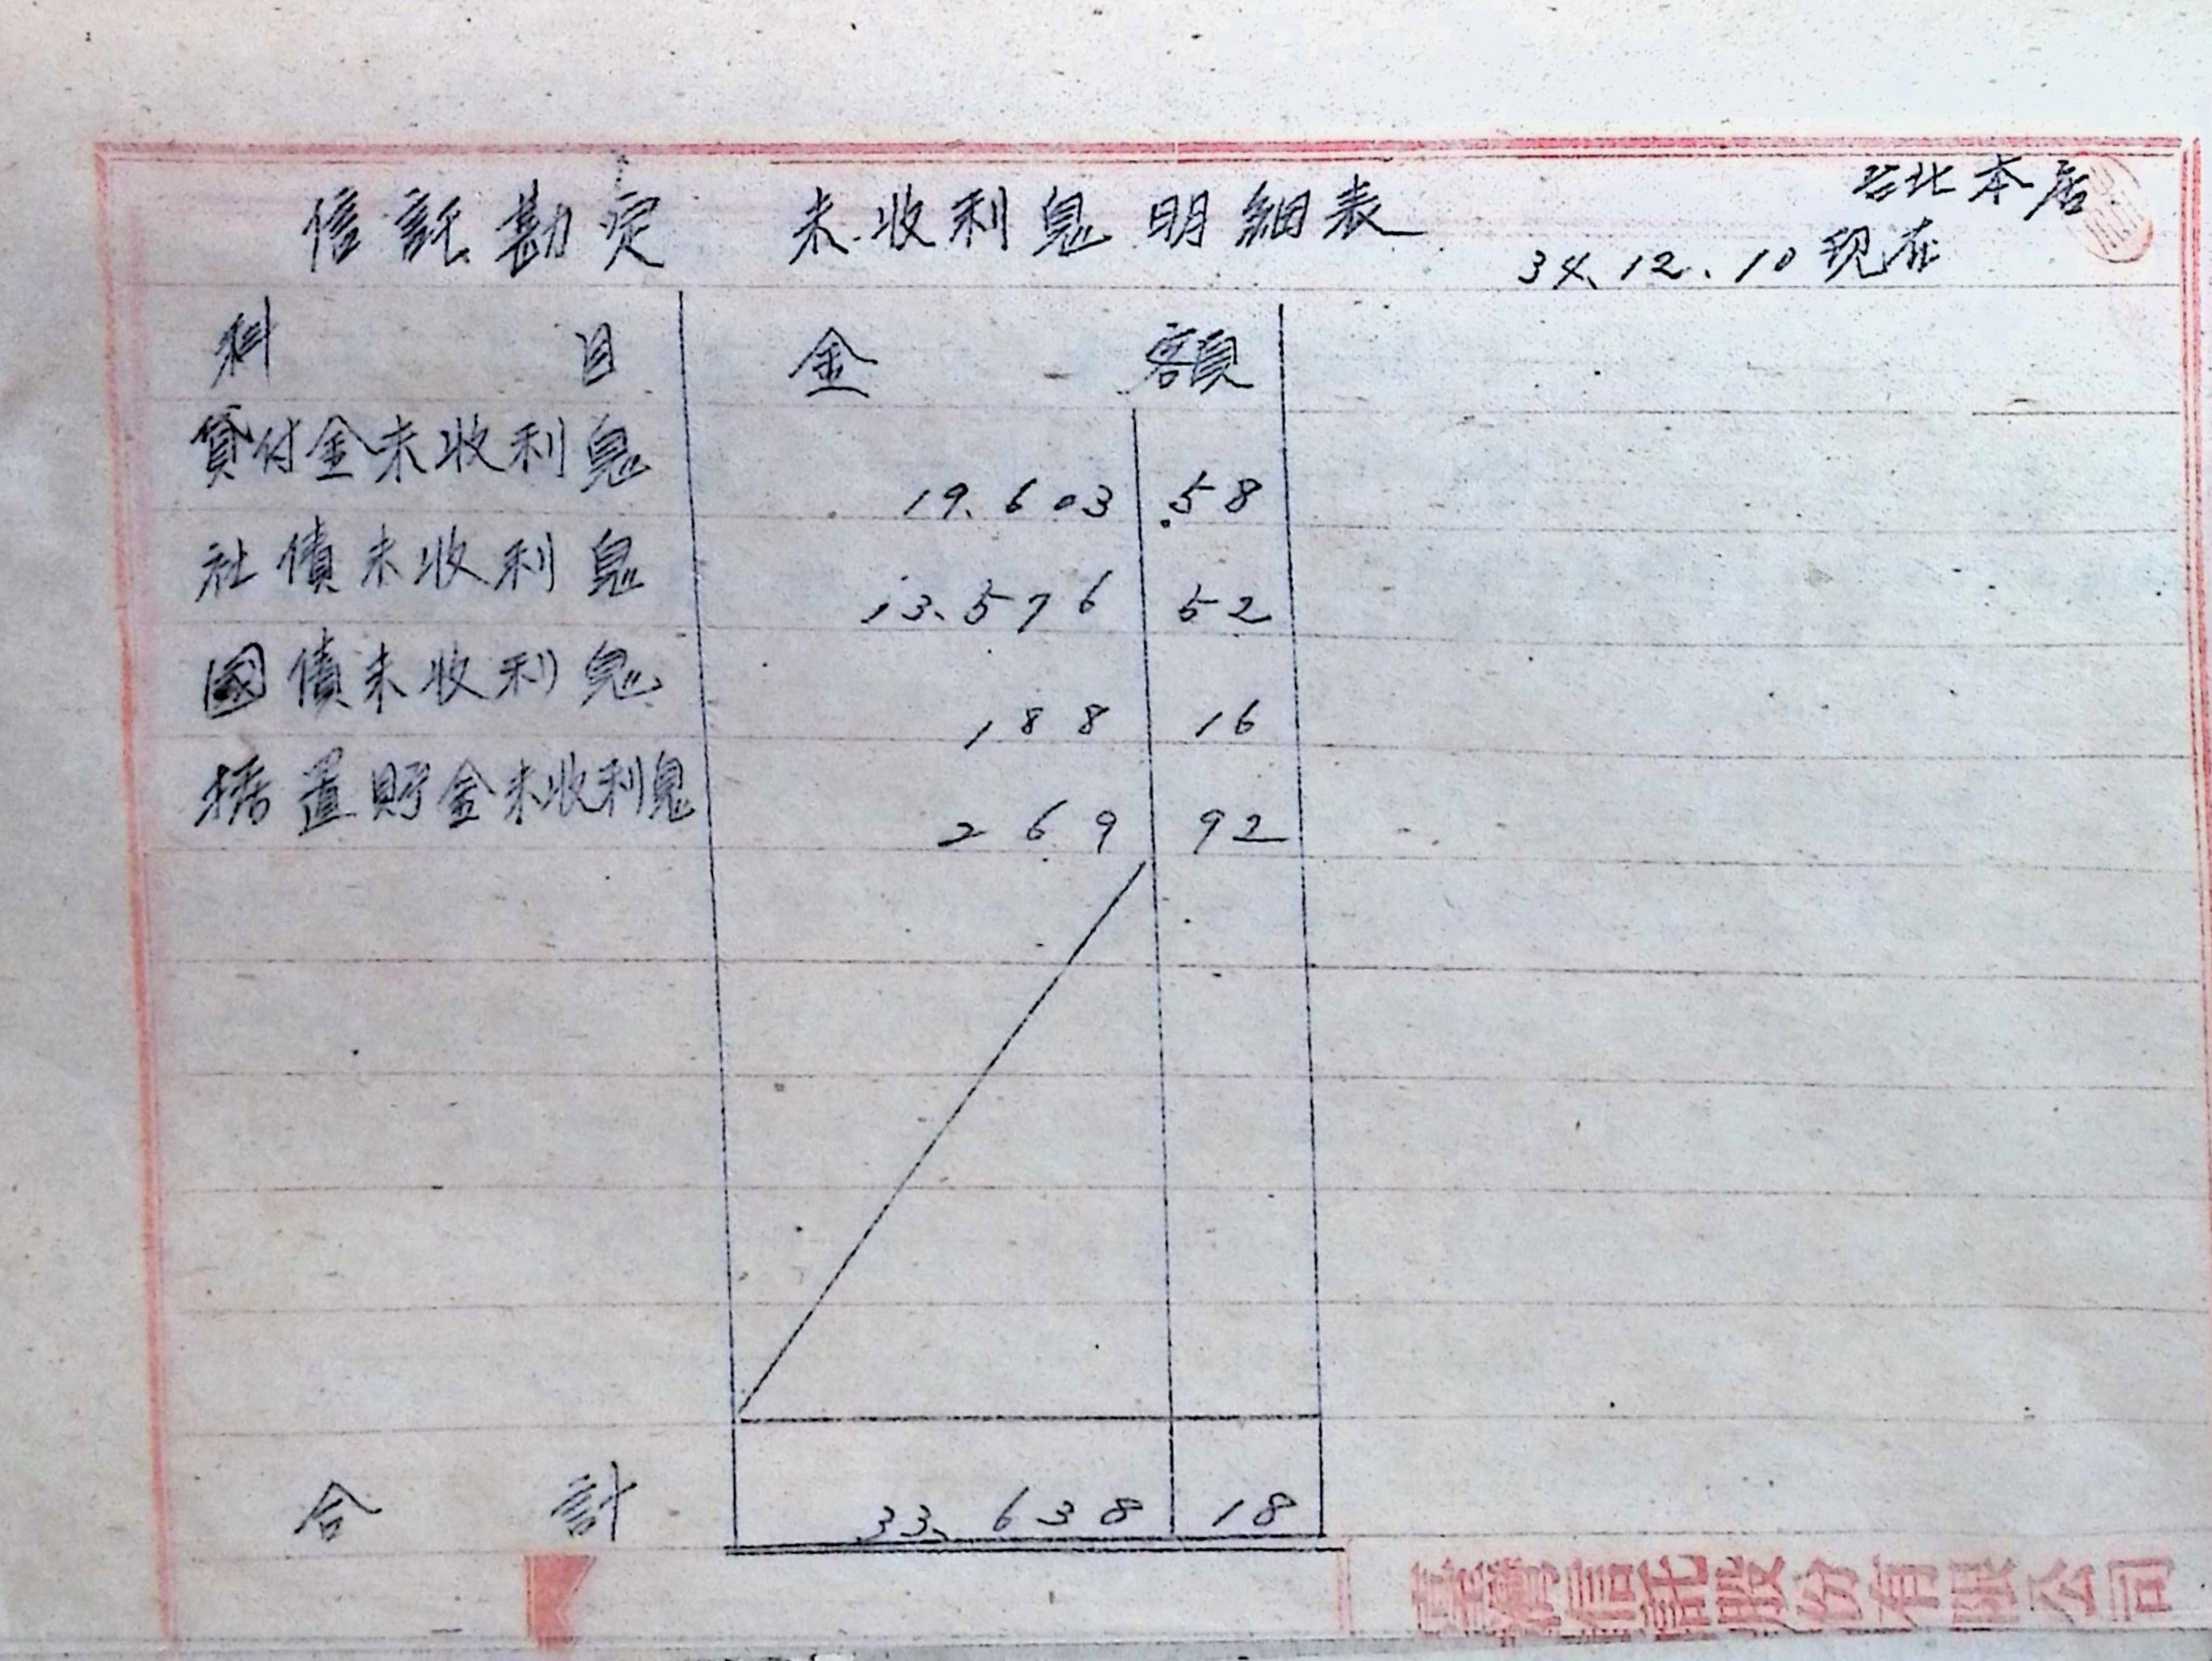 台北本店
信託勘定 未收利息明細表
34.12.10現在
科目 金額
貸付金未收利息 19.603 .58
社債未收利息 13.576 52
國債未收利息 188 16
据置貯金未收利息 269 92
合計 33.638 18
臺灣信託股份有限公司